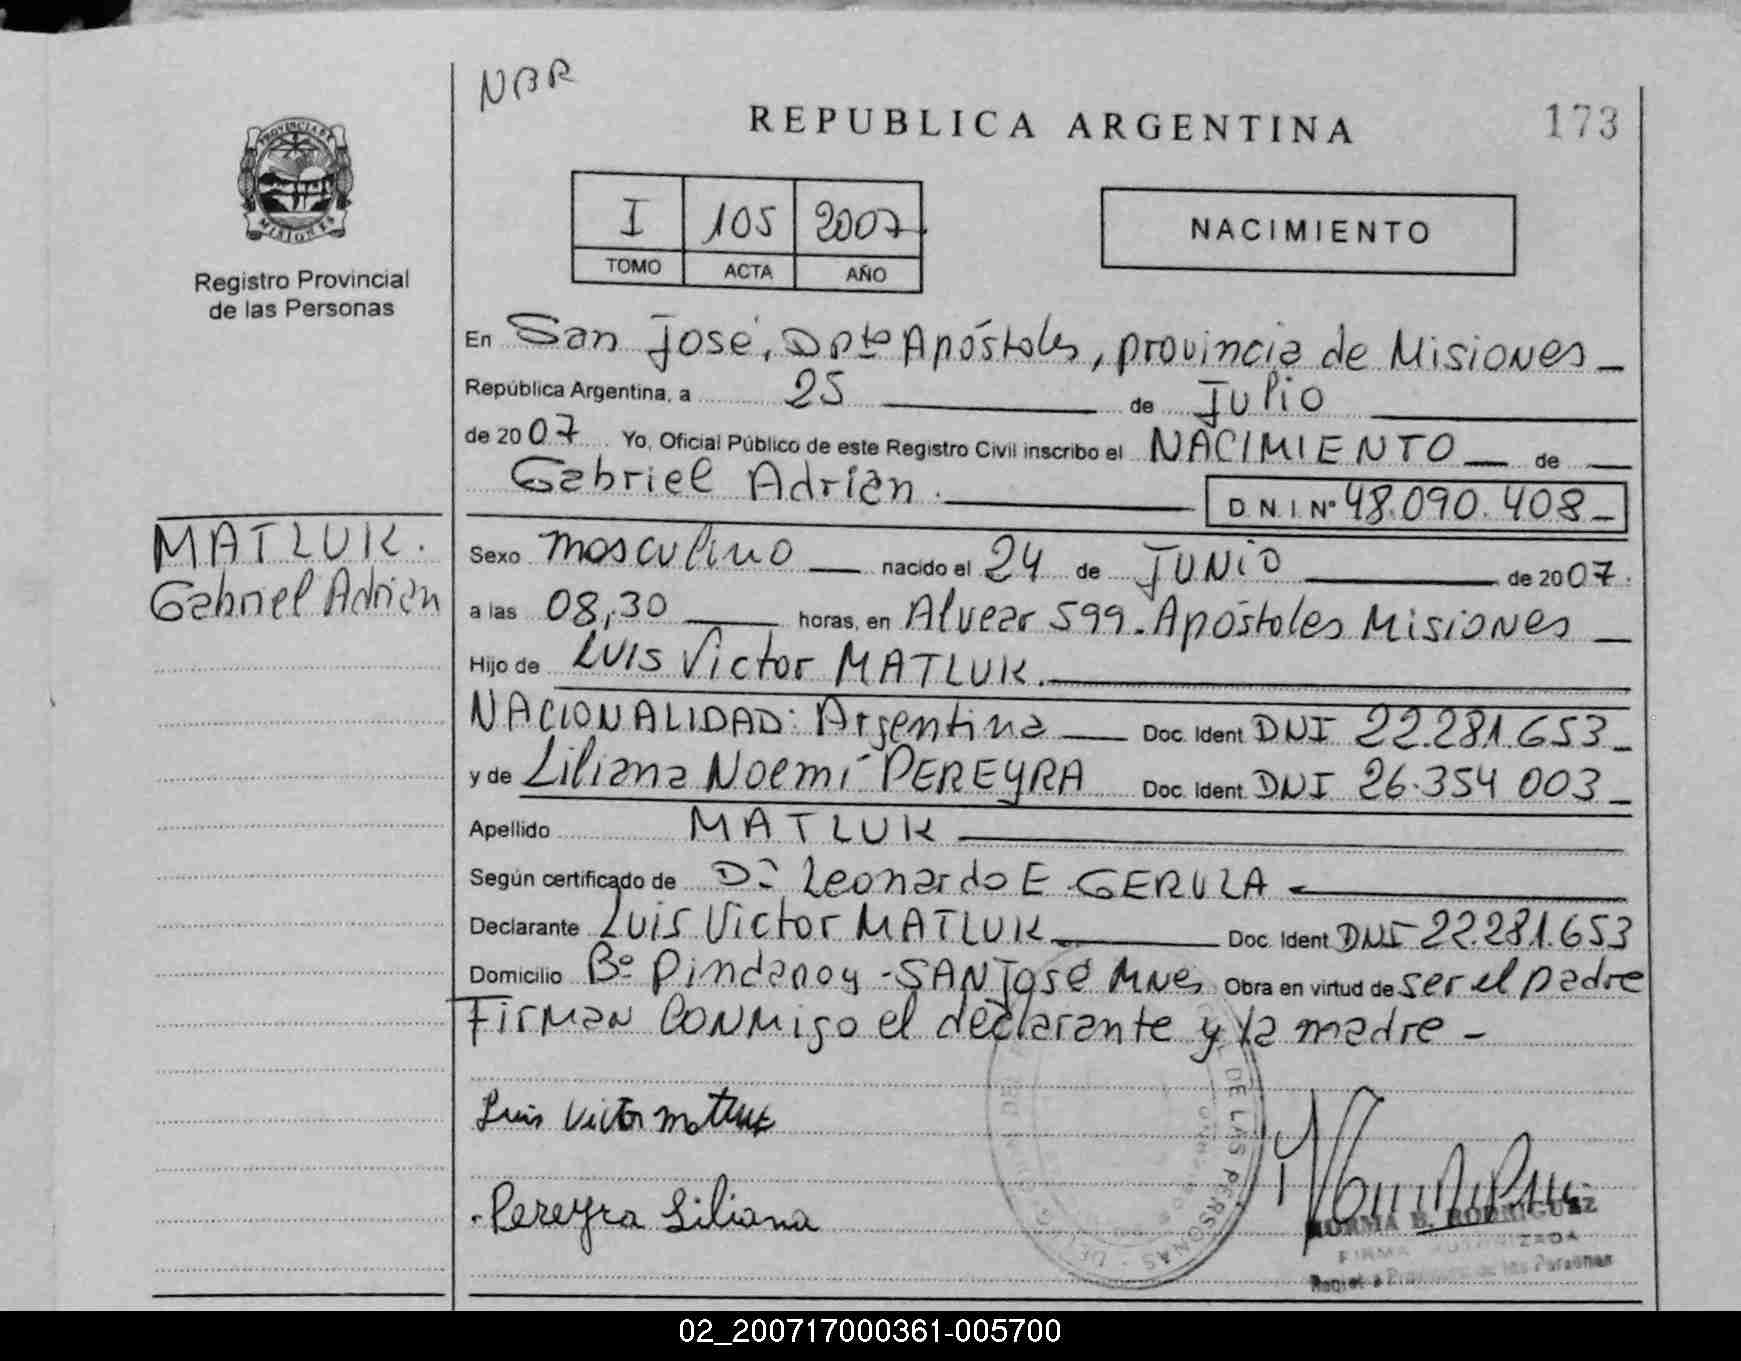 NBR
REPUBLICA ARGENTINA
173
PROVINCIA DE
MISIONES
Registro Provincial
de las Personas
I 105 2007
TOMO ACTA AÑO
NACIMIENTO
En San José, Dpto Apóstoles, provincia de Misiones
República Argentina, a 25 de Julio
de 2007 Yo, Oficial Público de este Registro Civil inscribo el NACIMIENTO de
Gabriel Adrián. D.N.I. Nº 48.090.408
MATLUK.
Gabriel Adrián
Sexo masculino nacido el 24 de JUNIO de 2007.
a las 08,30 horas, en Alvear 599. Apóstoles Misiones
Hijo de Luis Victor MATLUK.
NACIONALIDAD: Argentina Doc. Ident. DNI 22.281.653
y de Liliana Noemí PEREYRA Doc. Ident. DNI 26.354 003
Apellido MATLUK
Según certificado de Dr. Leonardo E GERULA
Declarante Luis Victor MATLUK Doc. Ident. DNI 22.281.653
Domicilio Bº Pindapoy - SAN José Mnes Obra en virtud de ser el padre
Firman CONMigo el declarante y la madre -
Luis Victor Matluk
Pereyra Liliana
DE LAS PERSONAS
NORMA B. RODRIGUEZ
FIRMA AUTORIZADA
de las Personas
02_200717000361-005700